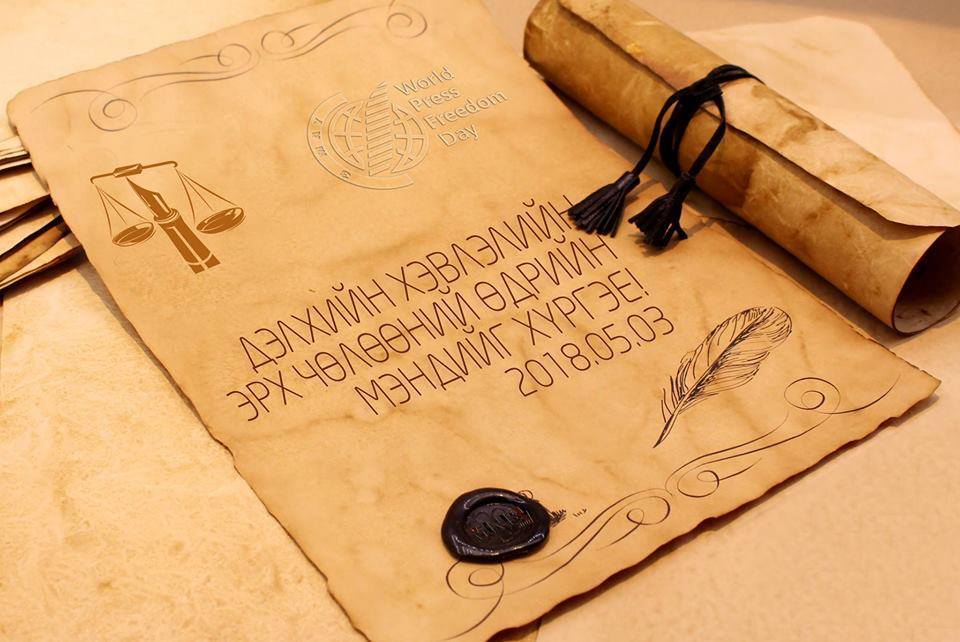 World
Press
Freedom
Day
3 MAY
ДЭЛХИЙН ХЭВЛЭЛИЙН
ЭРХ ЧӨЛӨӨНИЙ ӨДРИЙН
МЭНДИЙГ ХҮРГЭЕ!
2018.05.03